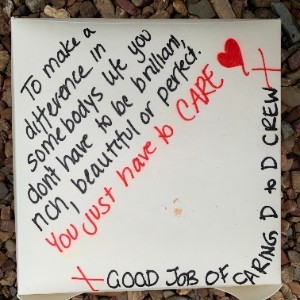 To make a
difference in
somebodys life you
dont have to be brilliant,
rich, beautiful or perfect.
You just have to CARE
X GOOD JOB OF CARING D to D CREW X